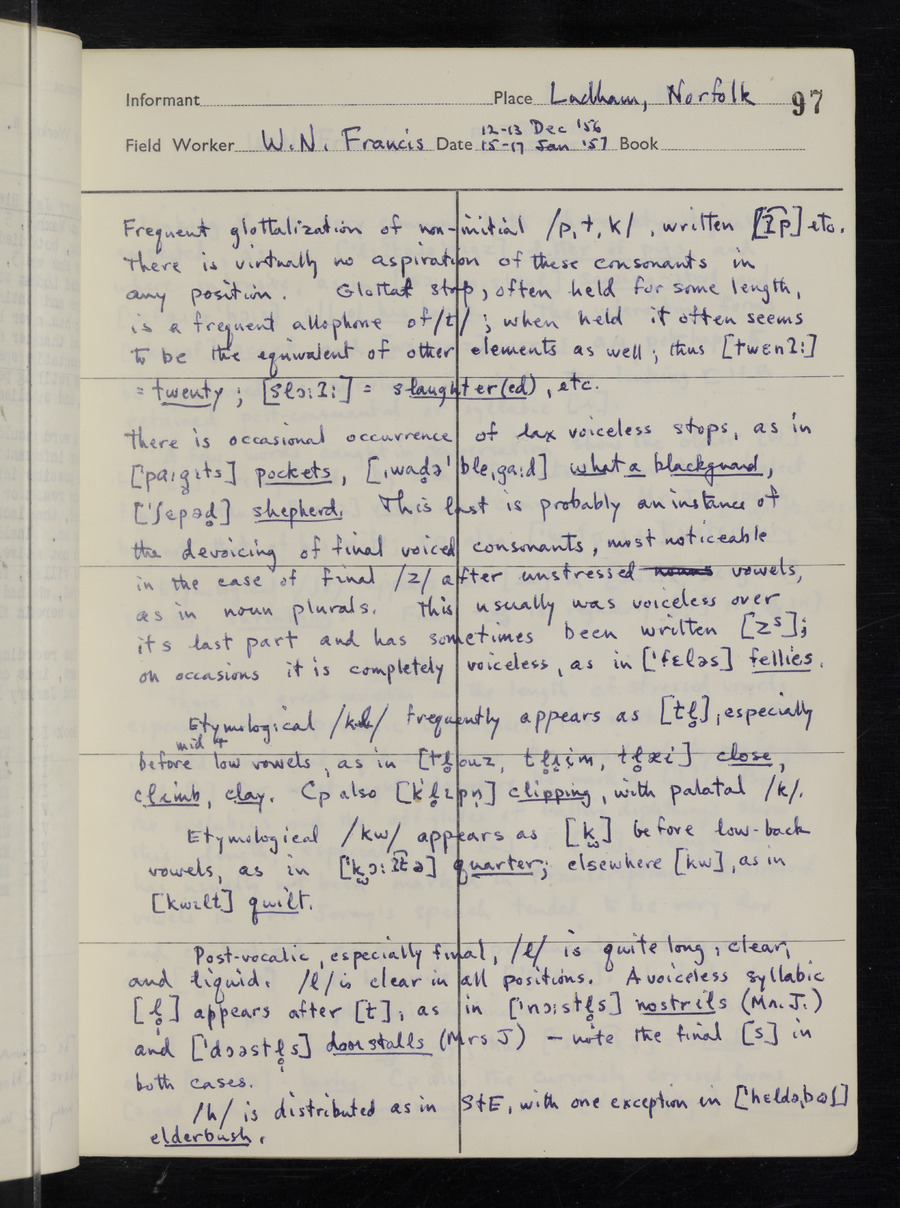 Informant Place Ludham, Norfolk 97
12-13 Dec '56
Field Worker W.N. Francis Date 15-17 Jan '57 Book
Frequent glottalization of non-initial /p, t, k/, written [ʔ͡p] etc.
There is virtually no aspiration of these consonants in
any position. Glottal stop, often held for some length,
is a frequent allophone of /t/; when held it often seems
to be the equivalent of other elements as well; thus [twɛnʔː]
= twenty; [slɔːʔː] = slaughter(ed), etc.
There is occasional occurrence of lax voiceless stops, as in
['paɪg̥ɪts] pockets, [ˌwad̥ə'bleˌgaːd] what a blackguard,
['ʃepəd̥] shepherd. This last is probably an instance of
the devoicing of final voiced consonants, most noticeable
in the case of final /z/ after unstressed vowels,
as in noun plurals. This usually was voiceless over
its last part and has sometimes been written [zˢ];
on occasions it is completely voiceless, as in ['fɛləs] fellies.
Etymological /kl/ frequently appears as [tl̥], especially
mid +
before low vowels, as in [tl̥ouz, tl̥ɪim, tl̥æi] close,
climb, clay. Cp also [k'l̥ɪpn̩] clipping, with palatal /k/.
Etymological /kw/ appears as [k̫] before low-back
vowels, as in ['k̫ɔːʔ͡tə] quarter; elsewhere [kw], as in
[kwɪlt] quilt.
Post-vocalic, especially final, /l/ is quite long, clear,
and liquid. /l/ is clear in all positions. A voiceless syllabic
[l̥̩] appears after [t], as in ['nɔːstl̥̩s] nostrils (Mr. J.)
and ['dɔəstl̥̩s] doorstalls (Mrs J) – note the final [s] in
both cases.
/h/ is distributed as in StE, with one exception in ['heldəˌbɷʃ]
elderbush.